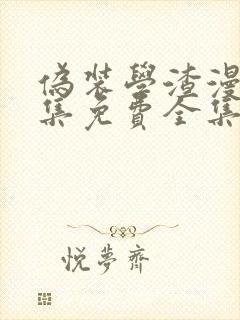 偽裝學渣漫
集免費全集
悅夢齋